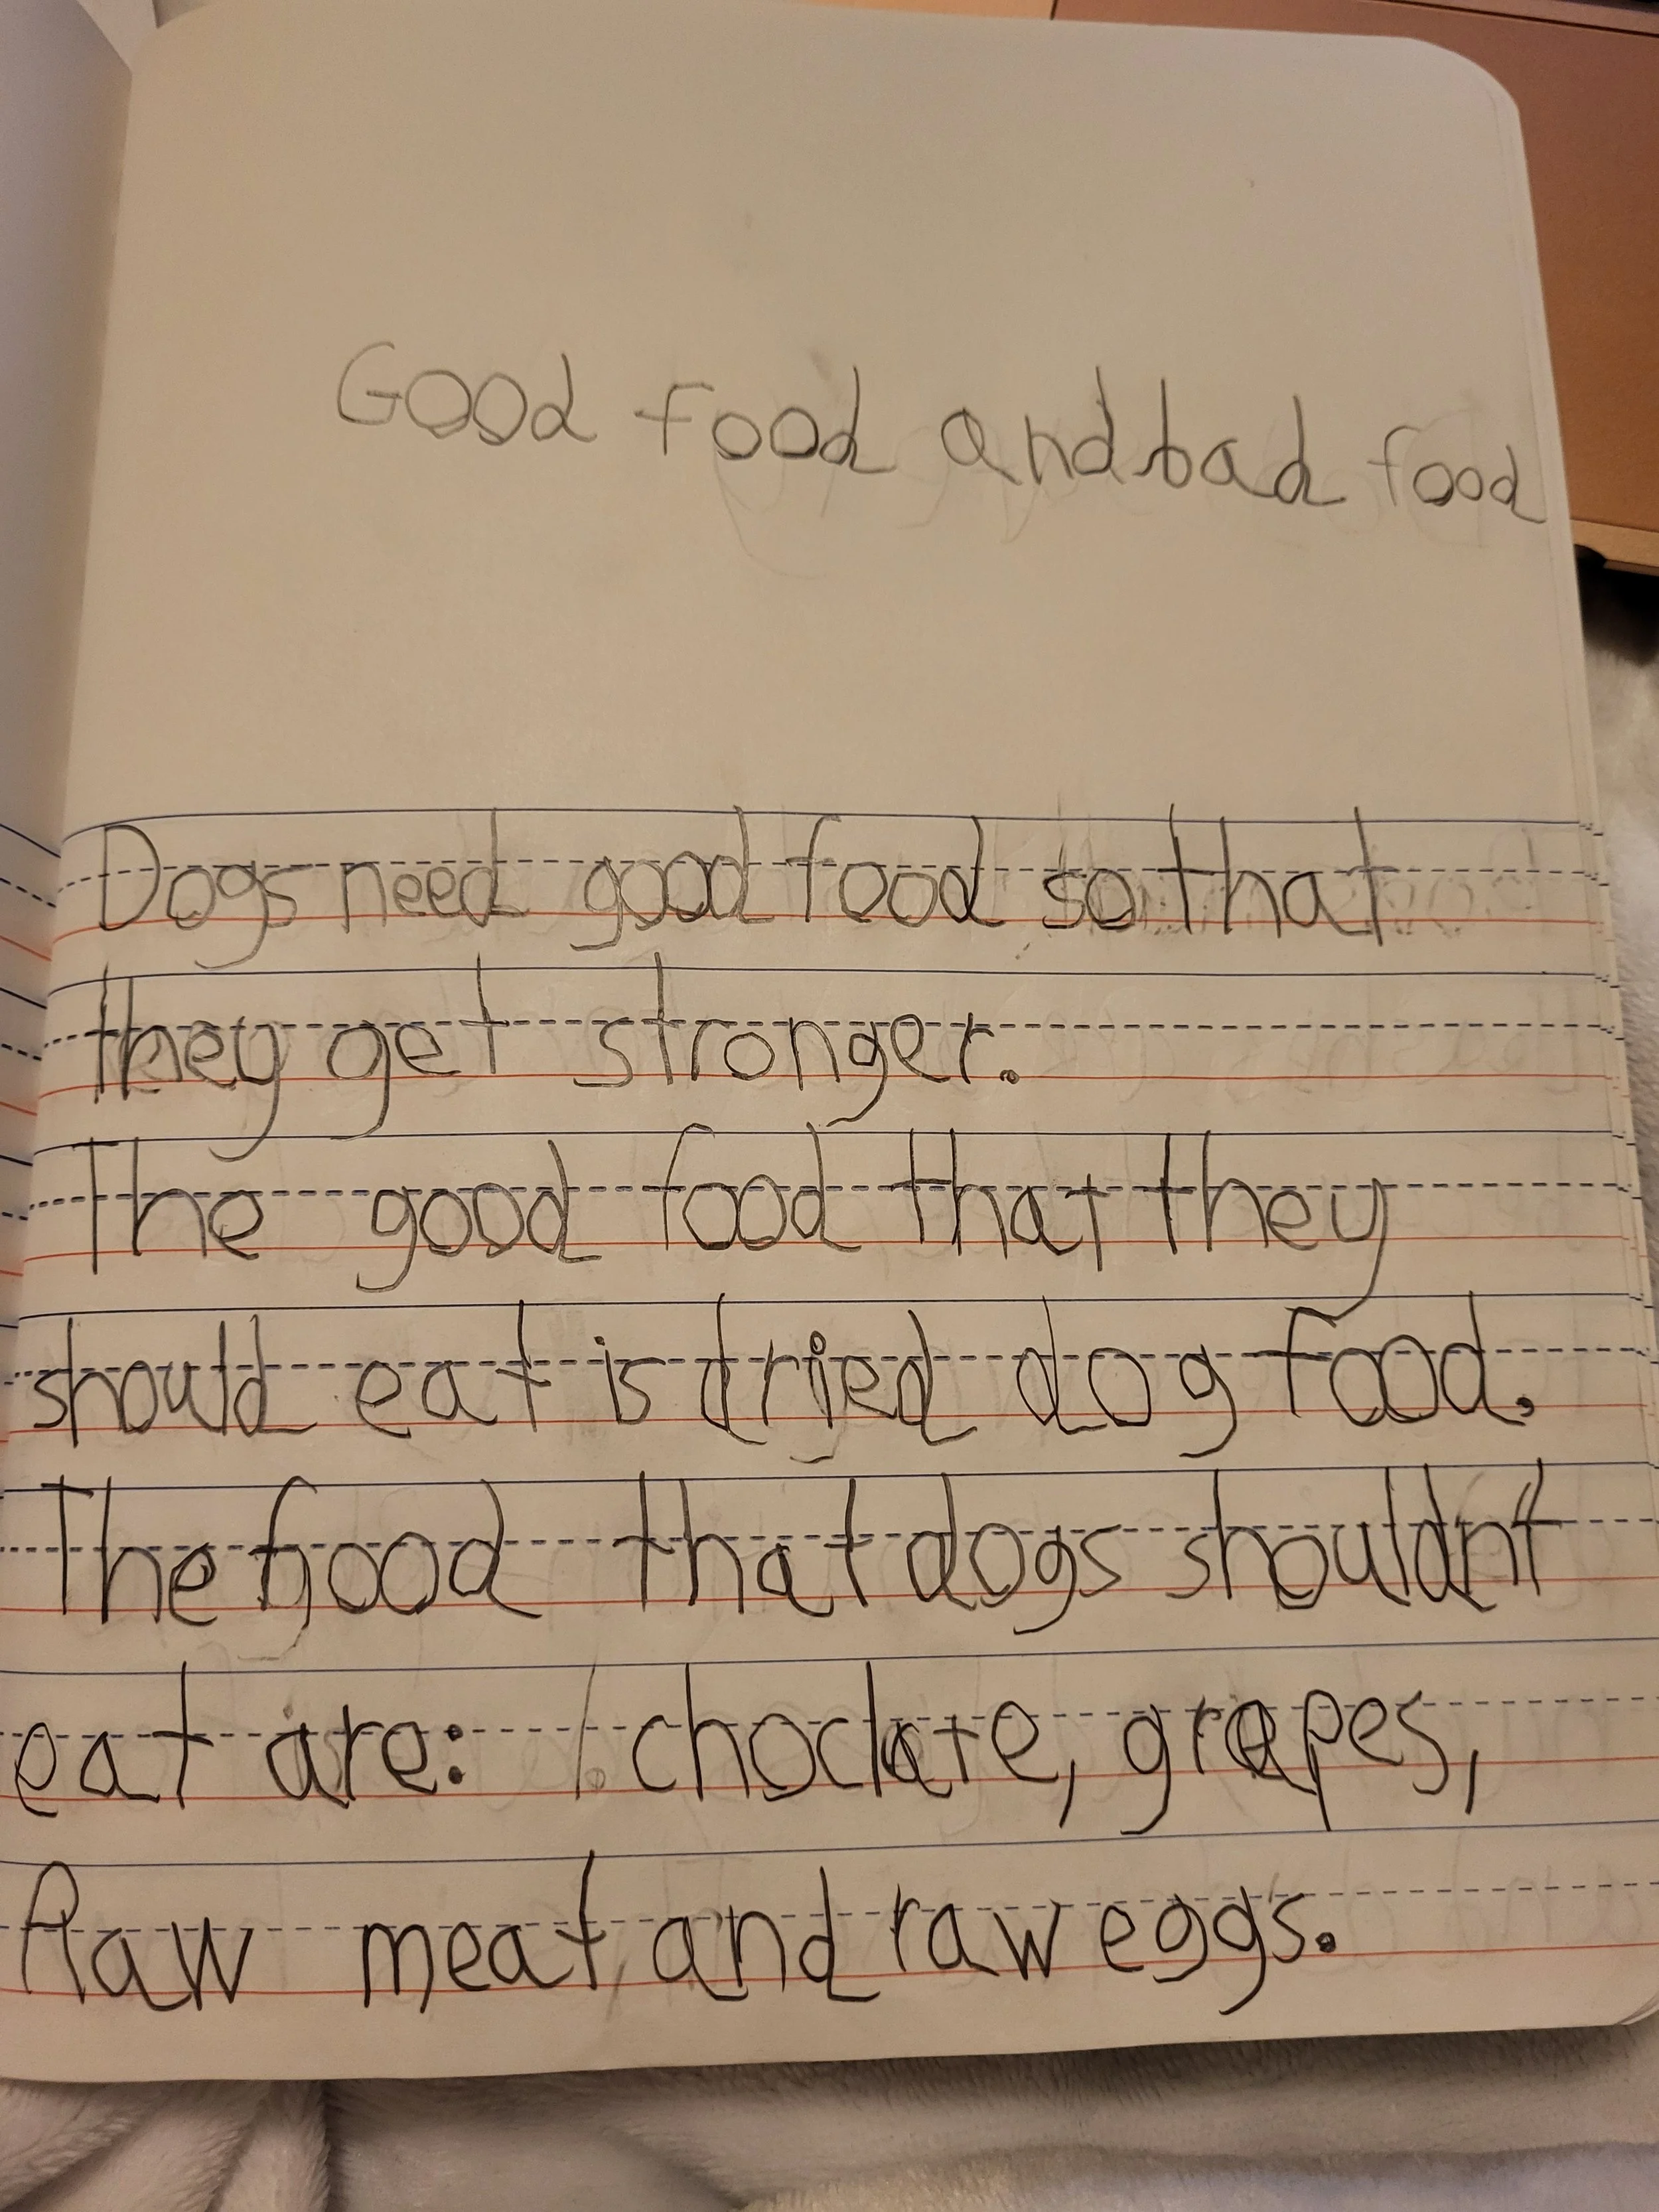 Good food and bad food
Dogs need good food so that
they get stronger.
The good food that they
should eat is dried dog food.
The food that dogs shouldnt
eat are: 1. choclate, grapes,
Raw meat, and raw eggs.